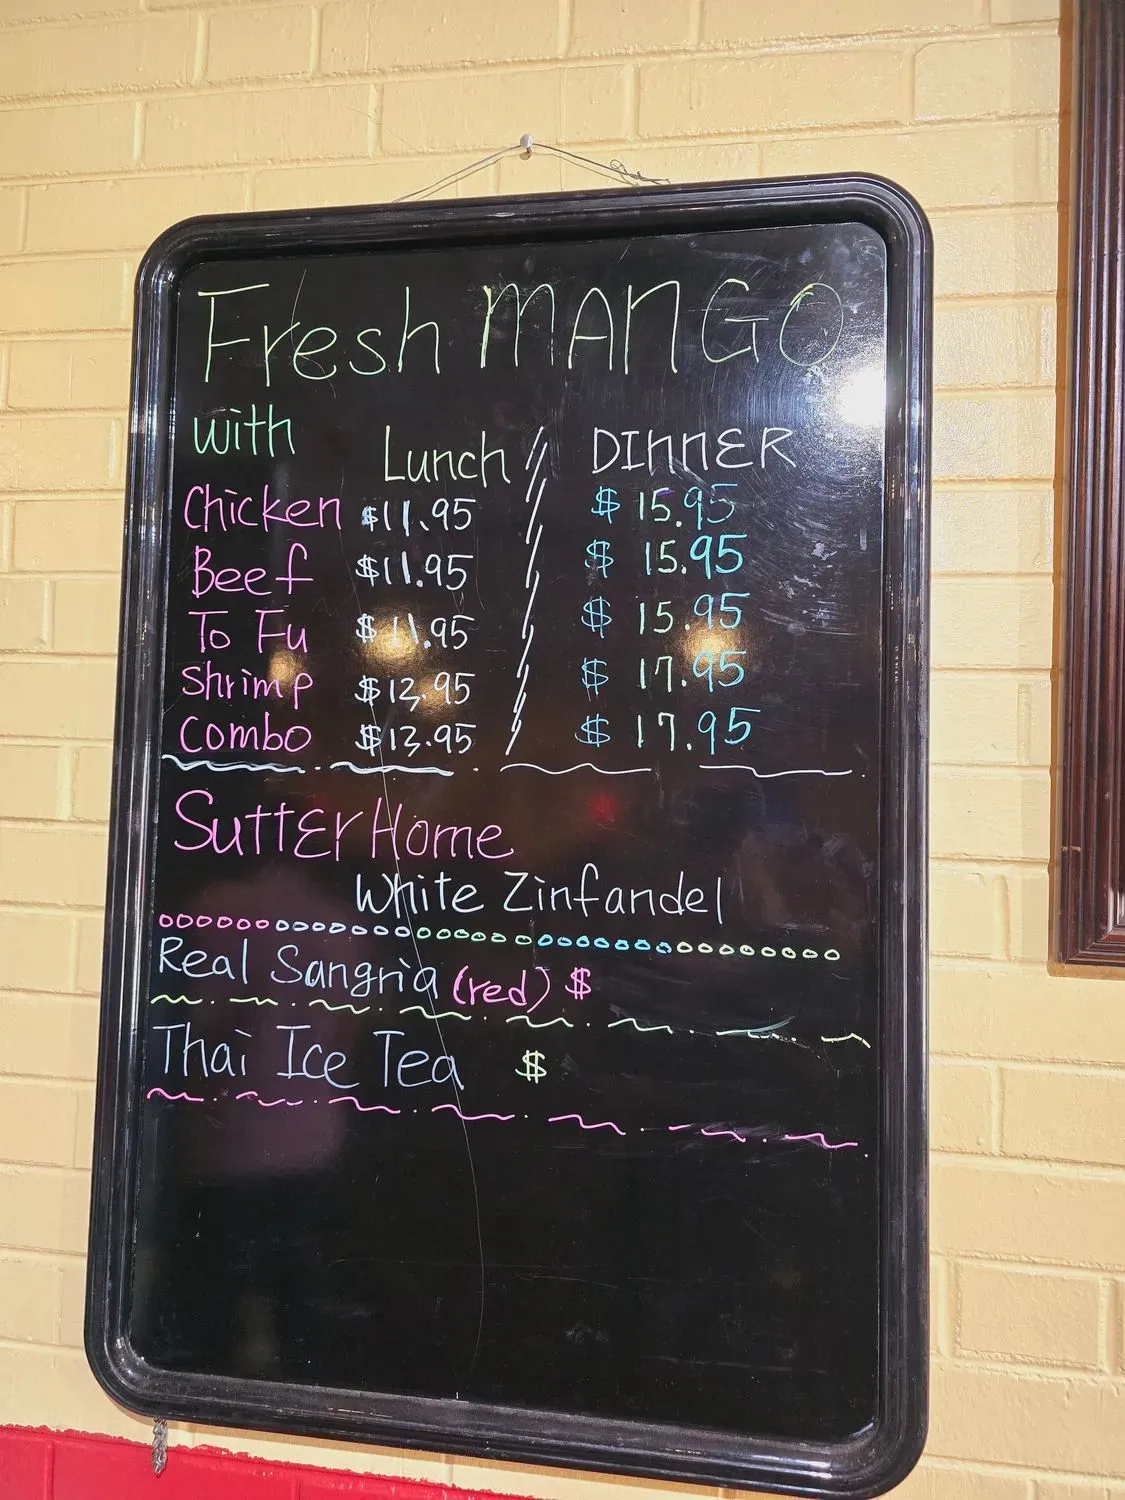 Fresh MANGO
with Lunch DINNER
Chicken $11.95 $15.95
Beef $11.95 $15.95
To Fu $11.95 $15.95
Shrimp $13.95 $17.95
Combo $13.95 $17.95
Sutter Home
White Zinfandel
Real Sangria (red) $
Thai Ice Tea $